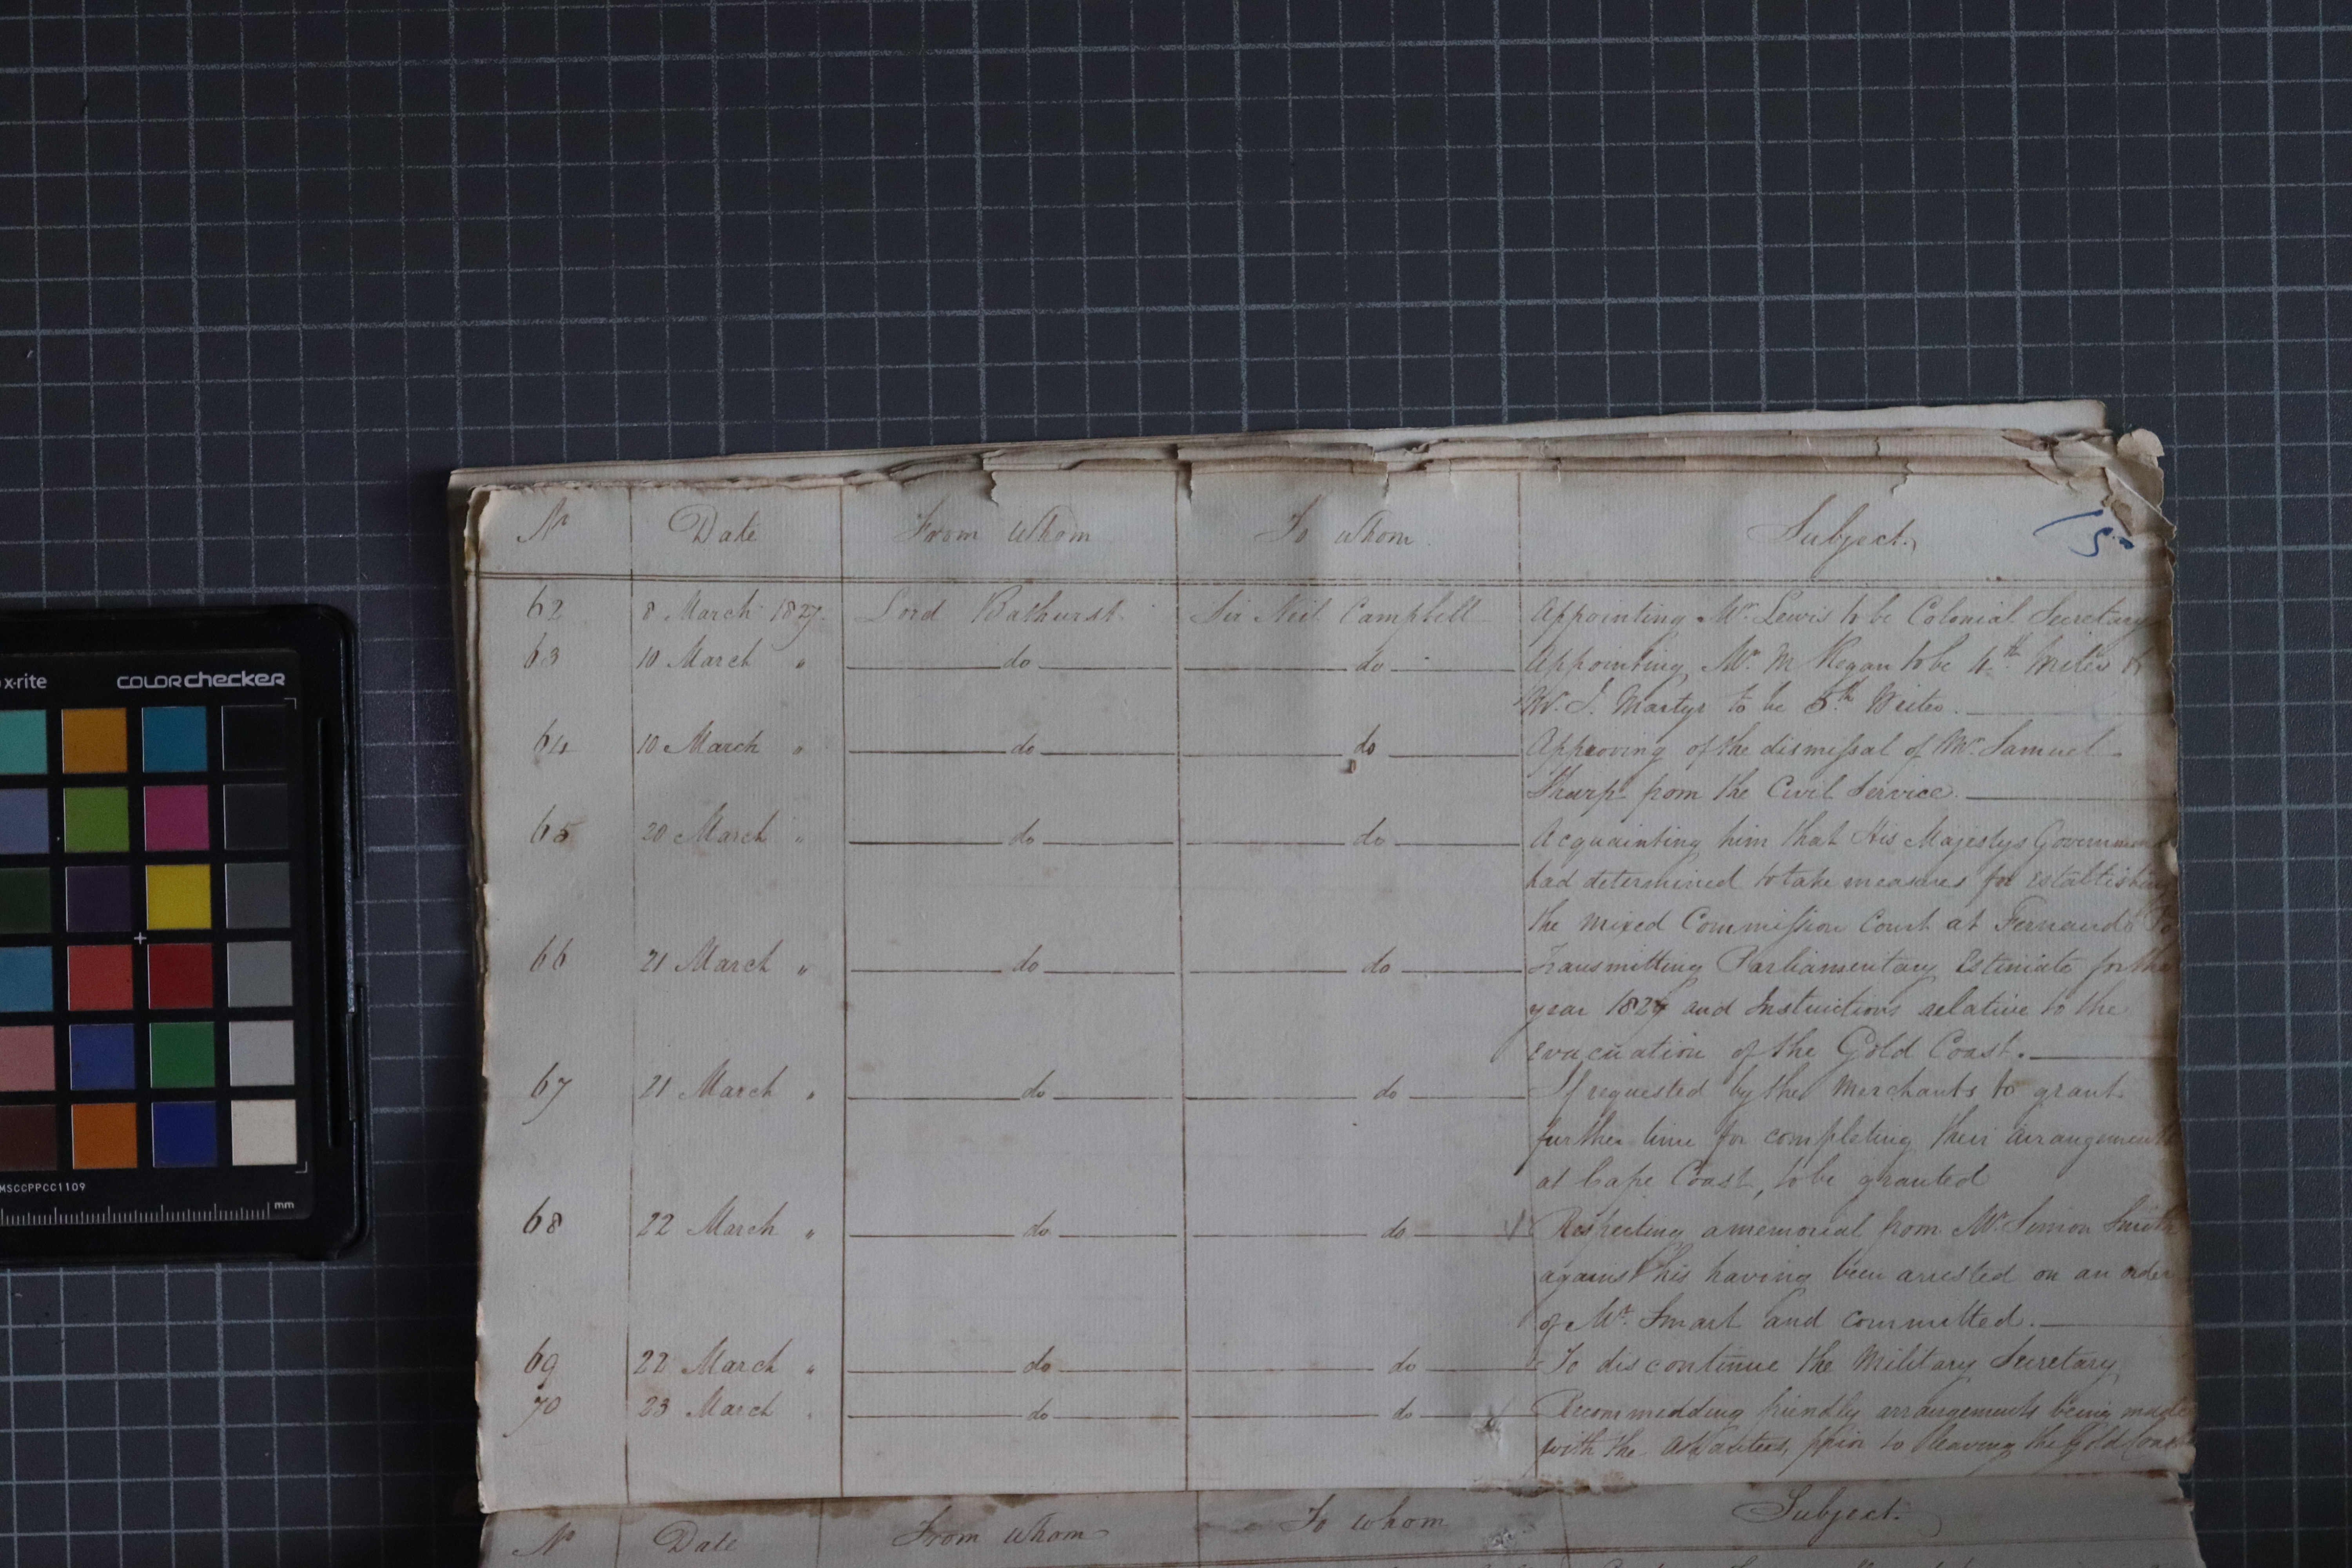 No Date From whom To whom Subject.
15.
62 8 March 1827. Lord Bathurst To Sir Neil Campbell Appointing Mr. Lewis to be Colonial Secretary
63 10 March " do do Appointing Mr. Mc Regan to be 4th Writer &
W. J. Martyr to be 5th Writer.
64 10 March " do do Approving of the dismissal of Mr. Samuel
Tharp from the Civil Service.
65 20 March " do do Acquainting him that His Majestys Government
had determined to take measures for establishing
the mixed Commission Court at Fernando Po
66 21 March " do do Transmitting Parliamentary Estimate for the
year 1827 and Instructions relative to the
evacuation of the Gold Coast.
67 21 March " do do If requested by the merchants to grant
further time for completing their arrangements
at Cape Coast, to be granted
68 22 March " do do Respecting a memorial from Mr. Simon Smith
against his having been arrested on an order
of Mr. Smart and committed.
69 22 March " do do To discontinue the Military Secretary
70 23 March do do Recommedding friendly arrangements being made
with the Ashantees, prior to leaving the Gold Coast
No Date From whom To whom Subject.
x-rite COLORchecker
MSCCPPCC1109
mm